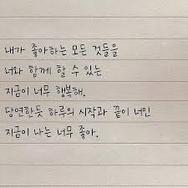 내가 좋아하는 모든 것들을
너와 함께 할 수 있는
지금이 너무 행복해.
당연한듯 하루의 시작과 끝이 너인
지금이 나는 너무 좋아.